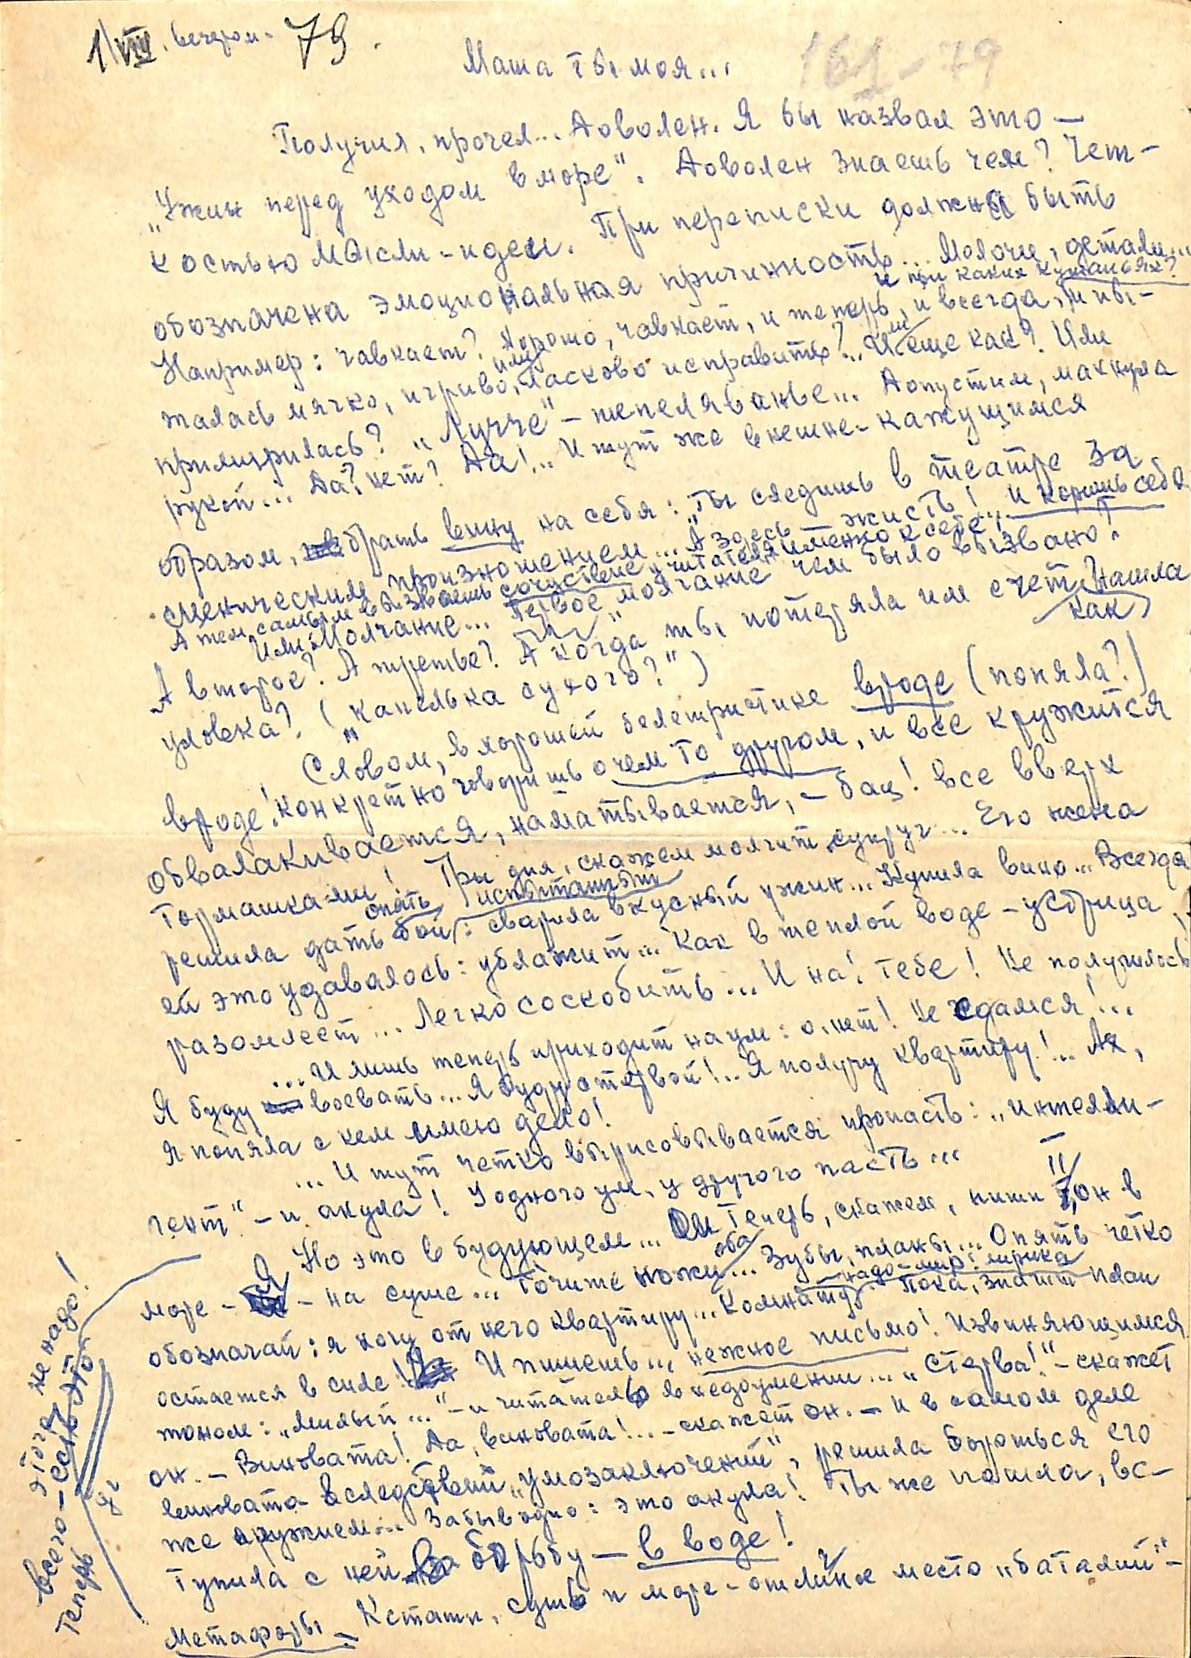 1/VIII. вечером. 79.
161-79
Маша ты моя...
Получил, прочел... Доволен. Я бы назвал это —
"Ужин перед уходом в море". Доволен знаешь чем? Чет-
костью мысли - идеи. При переписки должна быть
обозначена эмоциональная причинность... Мелочи, детали...
и при каких кушаньях?
Например: чавкает? Хорошо, чавкает, и теперь, и всегда, и пы-
талась мягко, игриво, или ласково исправить?... И еще как? Или
примирилась? "Лучче" - шепелявенье... Допустим, махнула
рукой... Да? нет? Да!.. И тут же внешне-кажущимся
образом, брать вину на себя: "Ты сидишь в театре за
сценическим произношением... А здесь - жисть! и коришь себя
А тем самым вызываешь сочувствие читателя именно к себе!
Или: Молчание... Первое молчание чем было вызвано!
А второе? А третье? А когда ты потеряла им счет? Нашла
как
уловка? ("Капелька сухого?")
Словом, в хорошей белетристике вроде (поняла?)
вроде! конкретно говоришь о чем то другом, и все кружится
обвалакивается, наматывается, - бац! все вверх
тормашками! Три дня, скажем молчит супруг... Его жена
опять испытанный
решила дать бой: сварила вкусный ужин... Купила вино... Всегда
ей это удавалось: ублажит... Как в теплой воде - устрица,
разомлеет... Легко соскобить... И на! тебе! Не получилось
...И лишь теперь приходит на ум: о, нет! Не сдамся!...
Я буду воевать... Я буду стервой!.. Я получу квартиру!.. Ах,
я поняла с кем имею дело!
...И тут четко вырисовывается пропасть: "интелли-
гент" - и акула! У одного ум, у другого пасть...
Но это в будующем... Теперь, скажем, пиши II, он в
море - Я - на суше... Точите оба ножи... Зубы, планы... Опять четко
надо - мир: лирика
обозначай: я хочу от него квартиру... Комнату? Пока, значит план
остается в силе! И пишешь... нежное письмо! Извиняющимся
тоном: "Милый..." - и читатель в недоумении... "Стерва!" - скажет
он. - Виновата! Да, виновата!... - скажет он. - И в самом деле
виновата вследствии "умозаключений", решила бороться его
же оружием... Забыв одно: это акула! Ты же пошла, вс-
тупила с ней в борьбу - в воде!
Метафоры - Кстати, суша и море - отличное место "баталий" -
этого не надо!
всего - есть это
Теперь